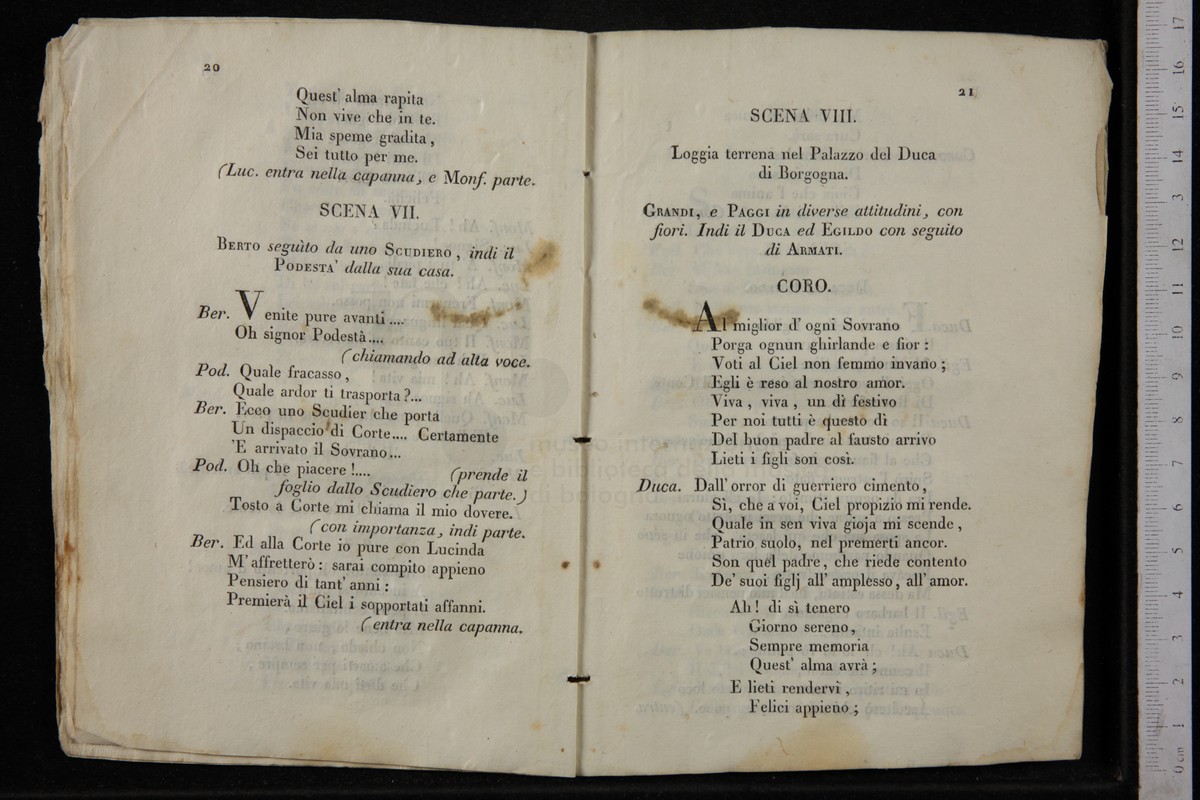 20
Quest' alma rapita
Non vive che in te.
Mia speme gradita,
Sei tutto per me.
(Luc. entra nella capanna, e Monf. parte.
SCENA VII.
BERTO seguito da uno SCUDIERO, indi il
PODESTA' dalla sua casa.
Ber. Venite pure avanti....
Oh signor Podestà....
(chiamando ad alta voce.
Pod. Quale fracasso,
Quale ardor ti trasporta?...
Ber. Ecco uno Scudier che porta
Un dispaccio di Corte.... Certamente
'E arrivato il Sovrano...
Pod. Oh che piacere!.... (prende il
foglio dallo Scudiero che parte.)
Tosto a Corte mi chiama il mio dovere.
(con importanza, indi parte.
Ber. Ed alla Corte io pure con Lucinda
M' affretterò: sarai compito appieno
Pensiero di tant' anni:
Premierà il Ciel i sopportati affanni.
(entra nella capanna.
21
SCENA VIII.
Loggia terrena nel Palazzo del Duca
di Borgogna.
GRANDI, e PAGGI in diverse attitudini, con
fiori. Indi il DUCA ed EGILDO con seguito
di ARMATI.
CORO.
Al miglior d' ogni Sovrano
Porga ognun ghirlande e fior:
Voti al Ciel non femmo invano;
Egli è reso al nostro amor.
Viva, viva, un dì festivo
Per noi tutti è questo dì
Del buon padre al fausto arrivo
Lieti i figli son così.
Duca. Dall' orror di guerriero cimento,
Sì, che a voi, Ciel propizio mi rende.
Quale in sen viva gioja mi scende,
Patrio suolo, nel premerti ancor.
Son quel padre, che riede contento
De' suoi figlj all' amplesso, all' amor.
Ah! di sì tenero
Giorno sereno,
Sempre memoria
Quest' alma avrà;
E lieti rendervi,
Felici appieno;